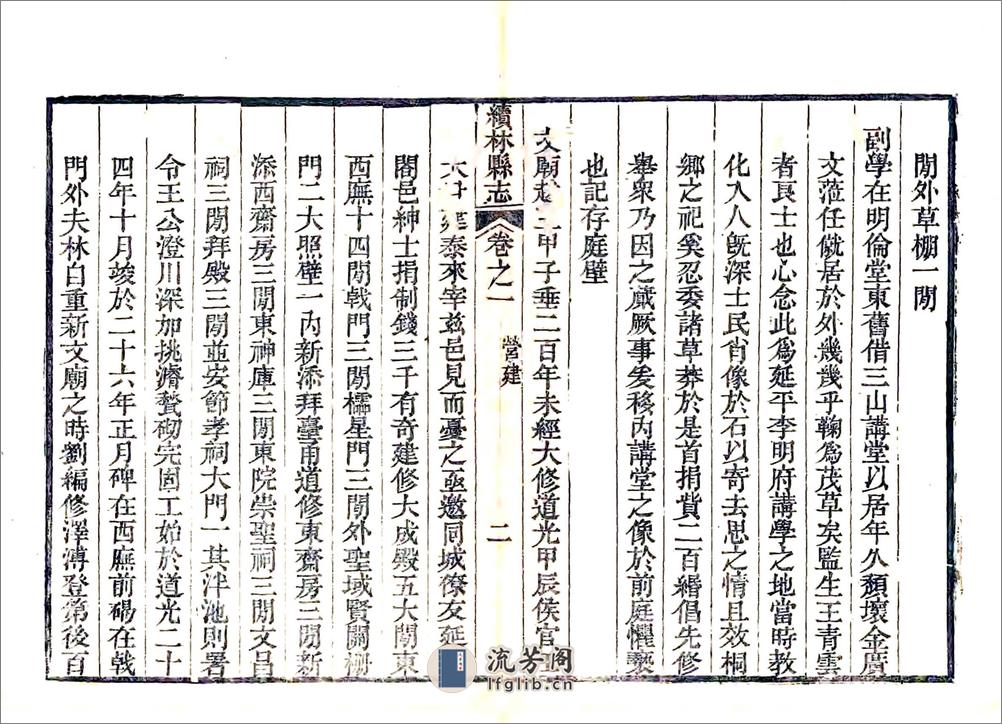 閒外草棚一閒
副學在明倫堂東舊借三山講堂以居年久頹壞金廣
文蒞任僦居於外幾乎鞠爲茂草矣監生王青雲
者良士也心念此爲延平李明府講學之地當時教
化入人旣深士民肖像於石以寄去思之情且效桐
鄉之祀奚忍委諸草莽於是首捐貲二百緡倡先修
舉衆乃因之蕆厥事爰移內講堂之像於前庭懼褻
也記存庭壁
文廟越三甲子垂二百年未經大修道光甲辰侯官
續林縣志 卷之一 營建 二
大 泰來宰兹邑見而憂之亟邀同城僚友延
閤邑紳士捐制錢三千有奇建修大成殿五大閒東
西廡十四閒戟門三閒櫺星門三閒外聖域賢關榭
門二大照壁一內新添拜臺甬道修東齋房三閒新
添西齋房三閒東神庫三閒東院崇聖祠三閒文昌
祠三閒拜殿三閒並安節孝祠大門一其泮池則署
令王公澄川深加挑濬甃砌完固工始於道光二十
四年十月竣於二十六年正月碑在西廡前碣在戟
門外夫林自重新文廟之時劉編修澤溥登第後百
流芳阁
lfglib.cn